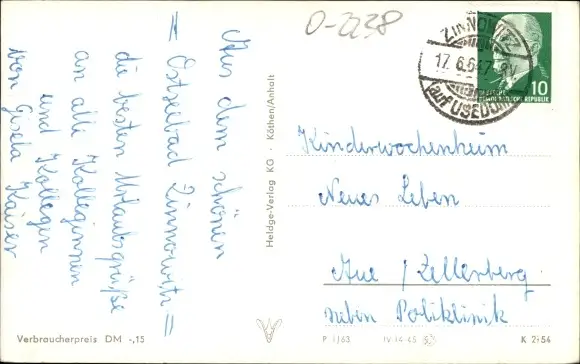 O-2238
Aus dem schönen
= Ostseebad Zinnowitz =
die besten Urlaubsgrüße
an alle Kolleginnen
und Kollegen
von Gisela Kaiser
Verbraucherpreis DM -,15
Heldge-Verlag KG · Köthen/Anhalt
ZINNOWITZ
17.6.64
auf USEDOM
10
DEUTSCHE
DEMOKRATISCHE REPUBLIK
Kinderwochenheim
Neues Leben
Aue / Zellerberg
neben Poliklinik
P 1/63 IV-14-45 K 2154